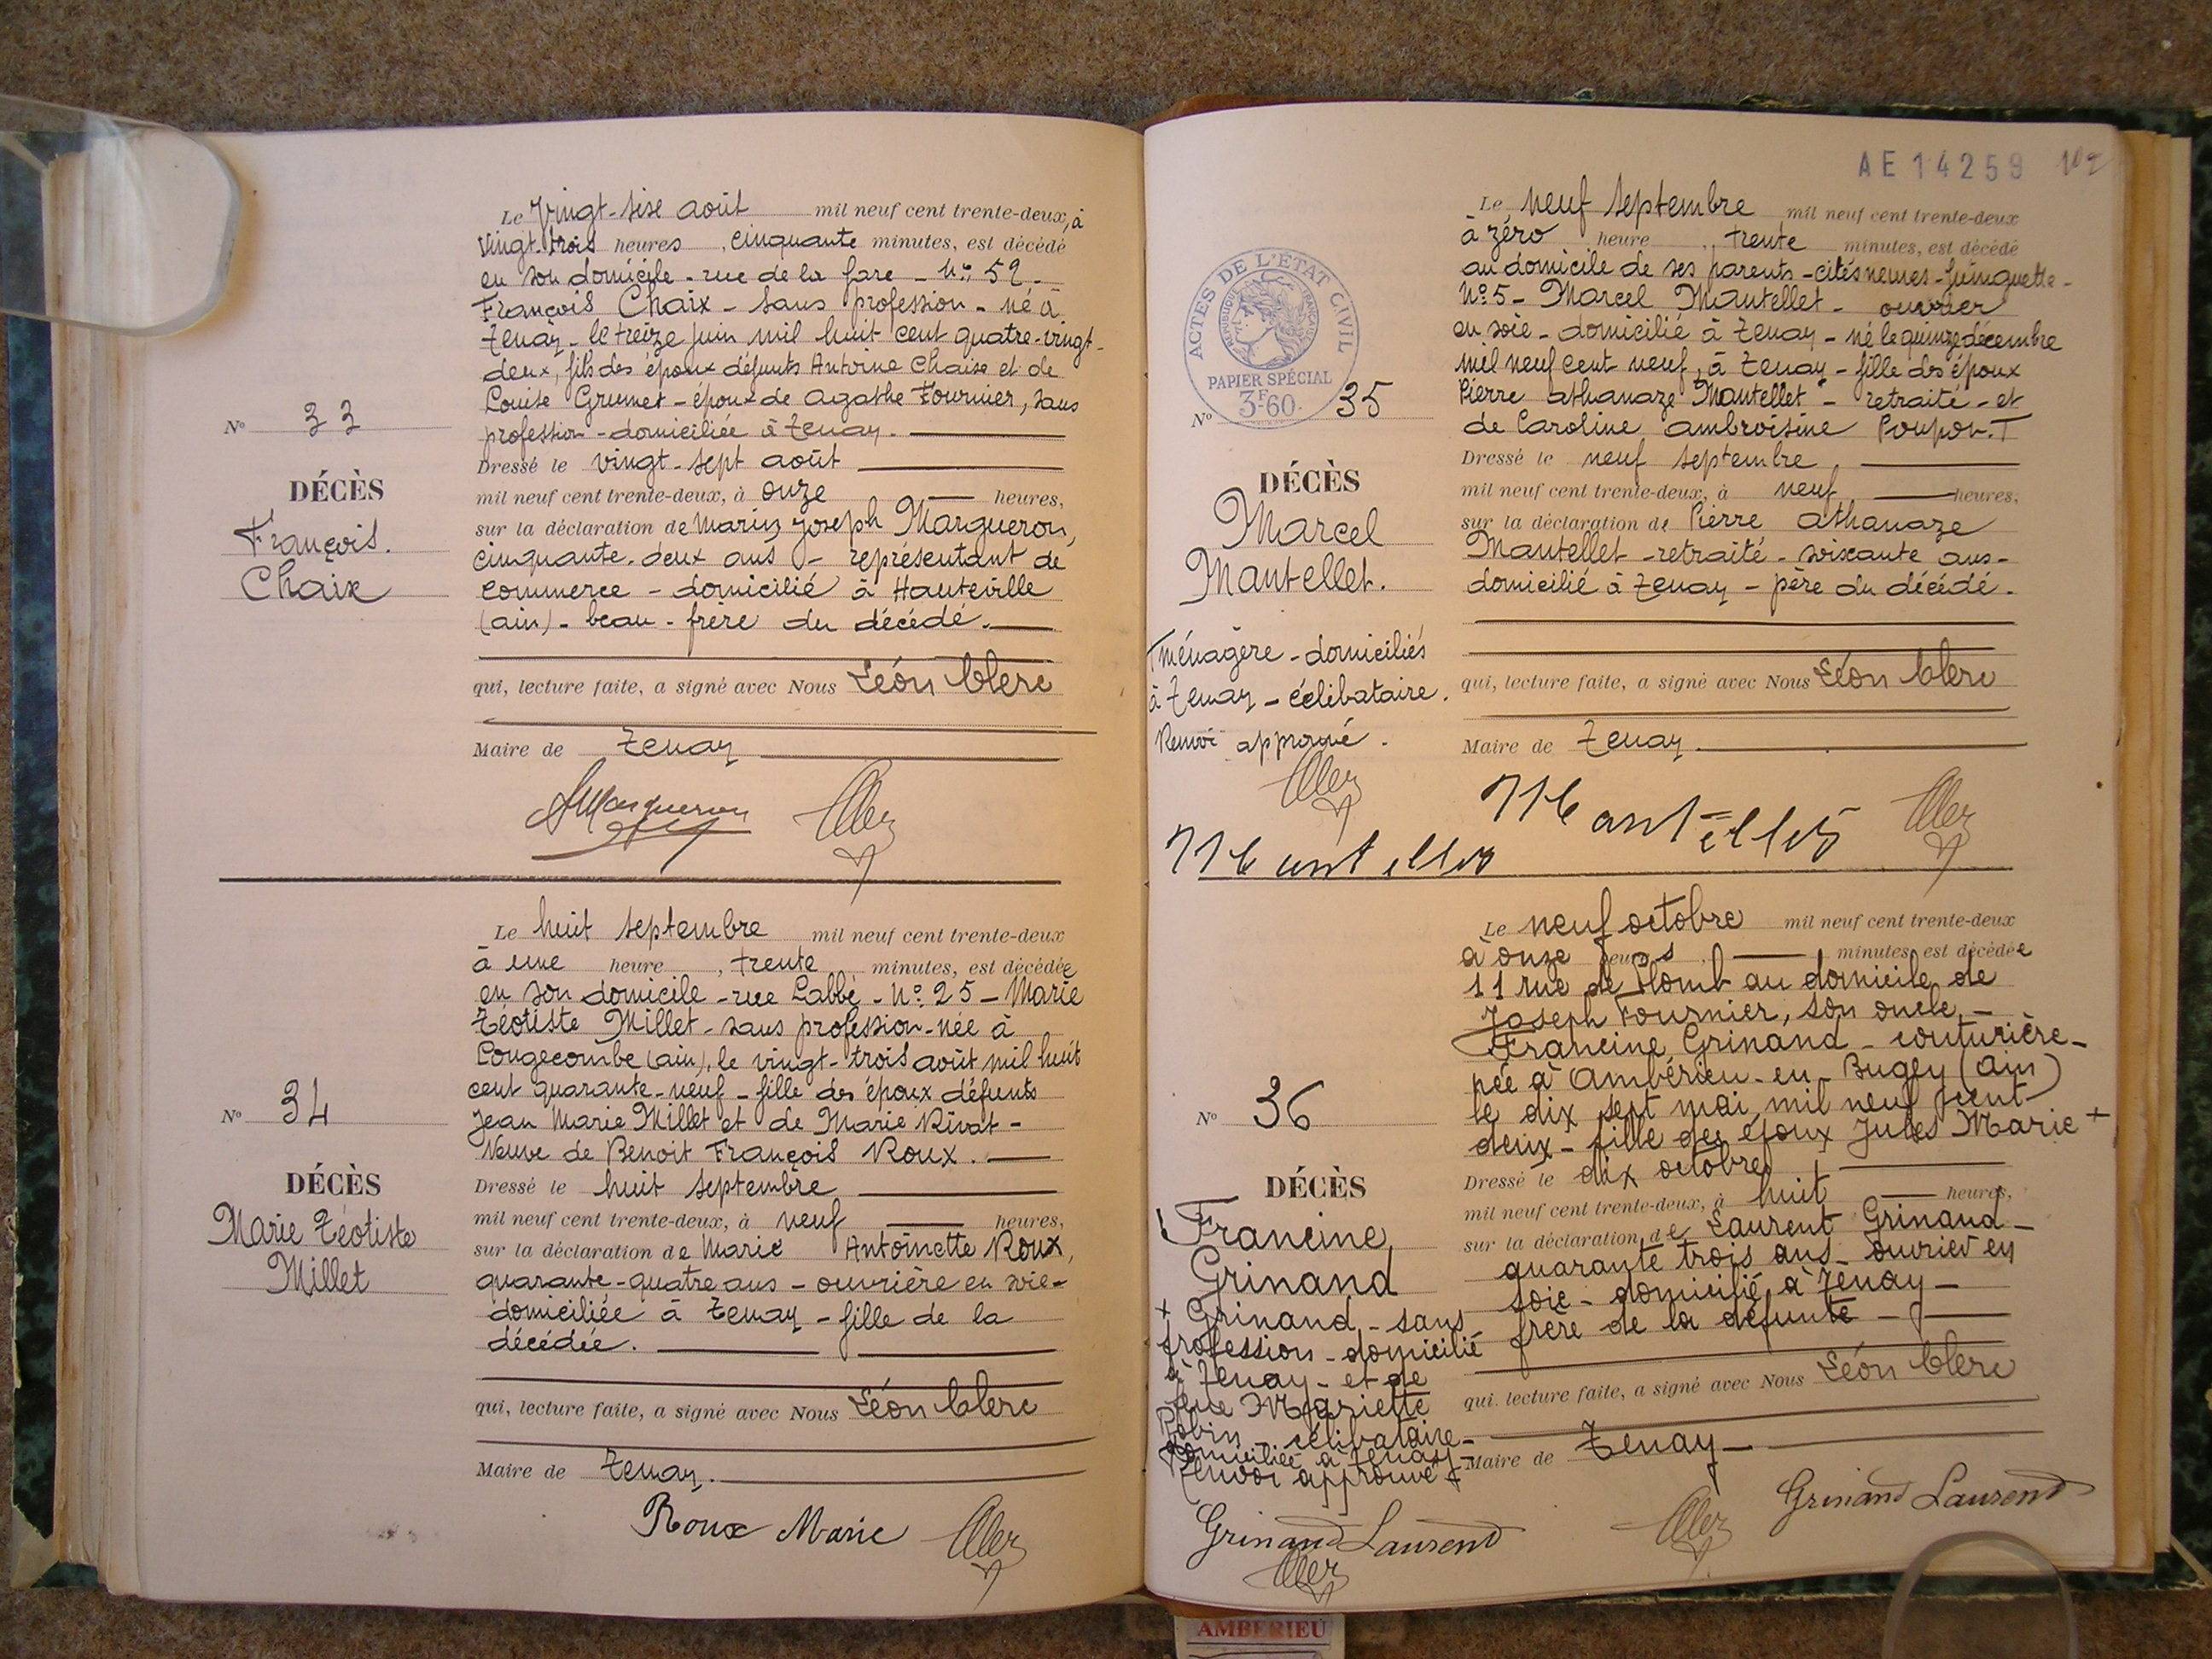 Le Vingt-sise août mil neuf cent trente-deux, à
Vingt-trois heures, cinquante minutes, est décédé
en son domicile - rue de la gare - N° 52 -
François Chaix - sans profession - né à
Tenay - le treize juin mil huit cent quatre-vingt-
deux, fils des époux défunts Antoine Chaise et de
Louise Grumet - époux de Agathe Fournier, sans
profession - domiciliée à Tenay.
N° 33
Dressé le vingt-sept août
DÉCÈS
mil neuf cent trente-deux, à onze heures,
François.
Chaix
sur la déclaration de Marius Joseph Margueron,
cinquante-deux ans - représentant de
commerce - domicilié à Hauteville
(ain) - beau-frère du décédé.
qui, lecture faite, a signé avec Nous Léon Clerc
Maire de Tenay
Margueron
Le huit septembre mil neuf cent trente-deux
à une heure, trente minutes, est décédée
en son domicile - rue Labbé - N° 25 - Marie
Zéotiste Millet - sans profession - née à
Longecombe (ain), le vingt-trois août mil huit
cent quarante-neuf - fille des époux défunts
Jean Marie Millet et de Marie Rivat -
Veuve de Benoit François Roux.
N° 34
Dressé le huit septembre
DÉCÈS
mil neuf cent trente-deux, à neuf heures,
Marie Zéotiste
Millet
sur la déclaration de Marie Antoinette Roux,
quarante-quatre ans - ouvrière en soie -
domiciliée à Tenay - fille de la
décédée.
qui, lecture faite, a signé avec Nous Léon Clerc
Maire de Tenay.
Roux Marie
AE 14259
Le neuf septembre mil neuf cent trente-deux
à zéro heure, trente minutes, est décédé
au domicile de ses parents - cités neuves - Guinguette -
N° 5 - Marcel Mantellet - ouvrier
en soie - domicilié à Tenay - né le quinze décembre
mil neuf cent neuf, à Tenay - fille des époux
Pierre athanaze Mantellet - retraité - et
de Caroline ambroisine Poupon. T
ACTES DE L'ETAT CIVIL
REPUBLIQUE FRANÇAISE
PAPIER SPÉCIAL
3F60
N° 35
Dressé le neuf septembre
DÉCÈS
mil neuf cent trente-deux, à neuf heures,
Marcel
Mantellet.
sur la déclaration de Pierre athanaze
Mantellet - retraité - soixante ans -
domicilié à Tenay - père du décédé.
T ménagère - domiciliés
à Tenay - célibataire.
Renvoi approuvé.
qui, lecture faite, a signé avec Nous Léon Clerc
Maire de Tenay.
Mantellet
Mantellet
Le neuf octobre mil neuf cent trente-deux
à onze heures minutes, est décédée
11 rue de Plomb au domicile de
Joseph Fournier, son oncle -
Francine Grinand - couturière -
née à Ambérieu-en-Bugey (Ain)
le dix sept mai mil neuf cent
deux - fille des époux Jules Marie +
N° 36
Dressé le dix octobre
DÉCÈS
mil neuf cent trente-deux, à huit heures,
Francine
Grinand
sur la déclaration de Laurent Grinand -
quarante trois ans - ouvrier en
soie - domicilié à Tenay -
frère de la défunte -
+ Grinand - sans
profession - domicilié
à Tenay - et de
feue Mariette
Robin - célibataire -
domiciliée à Tenay -
Renvoi approuvé
qui, lecture faite, a signé avec Nous Léon Clerc
Maire de Tenay
Grinand Laurent
Grinand Laurent
AMBERIEU